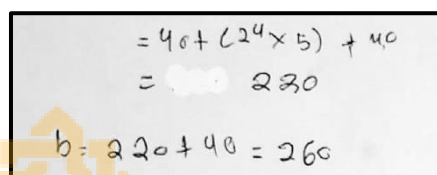 = 40+ (24 × 5) + 40
= 220
b = 220 + 40 = 260